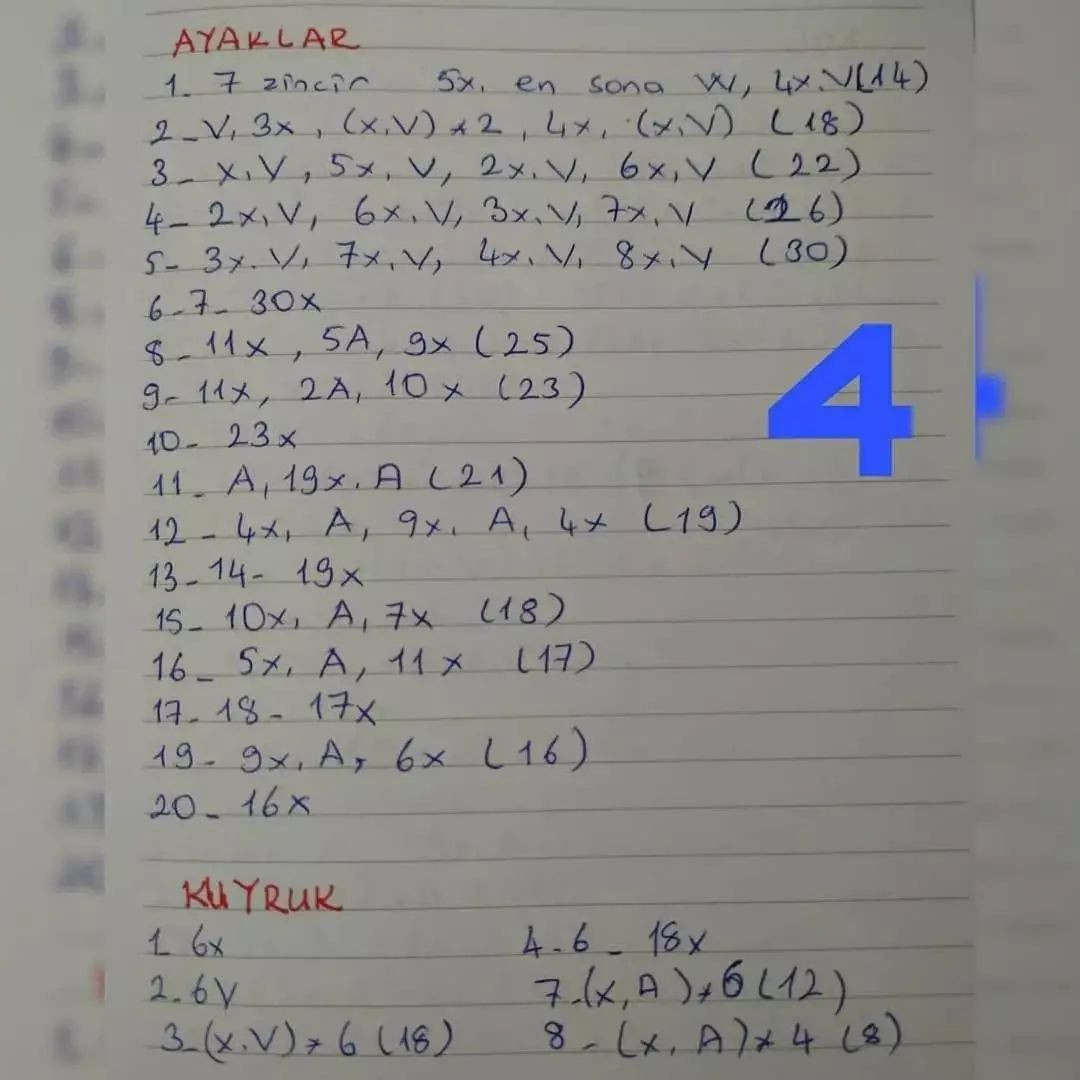 AYAKLAR
1. 7 zincir 5x, en sona W, 4x, V(14)
2- V, 3x, (x,V)*2, 4x, (x,V) (18)
3- x,V, 5x, V, 2x,V, 6x,V (22)
4- 2x,V, 6x,V, 3x,V, 7x,V (26)
5- 3x,V, 7x,V, 4x,V, 8x,V (30)
6-7- 30x
8- 11x, 5A, 9x (25)
9- 11x, 2A, 10x (23)
10- 23x
11- A, 19x, A (21)
12- 4x, A, 9x, A, 4x (19)
13-14- 19x
15- 10x, A, 7x (18)
16- 5x, A, 11x (17)
17-18- 17x
19- 9x, A, 6x (16)
20- 16x
4
KUYRUK
1. 6x
2. 6V
3-(x,V)*6 (18)
4-6- 18x
7-(x,A)*6 (12)
8-(x,A)*4 (8)